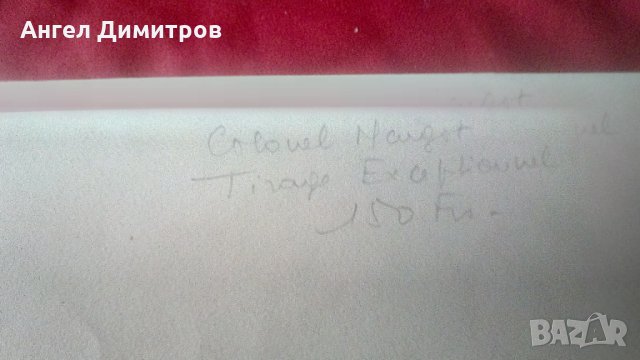 Ангел Димитров
Colonel
Tirage Exceptionnel
150 Frs.
BAZAR